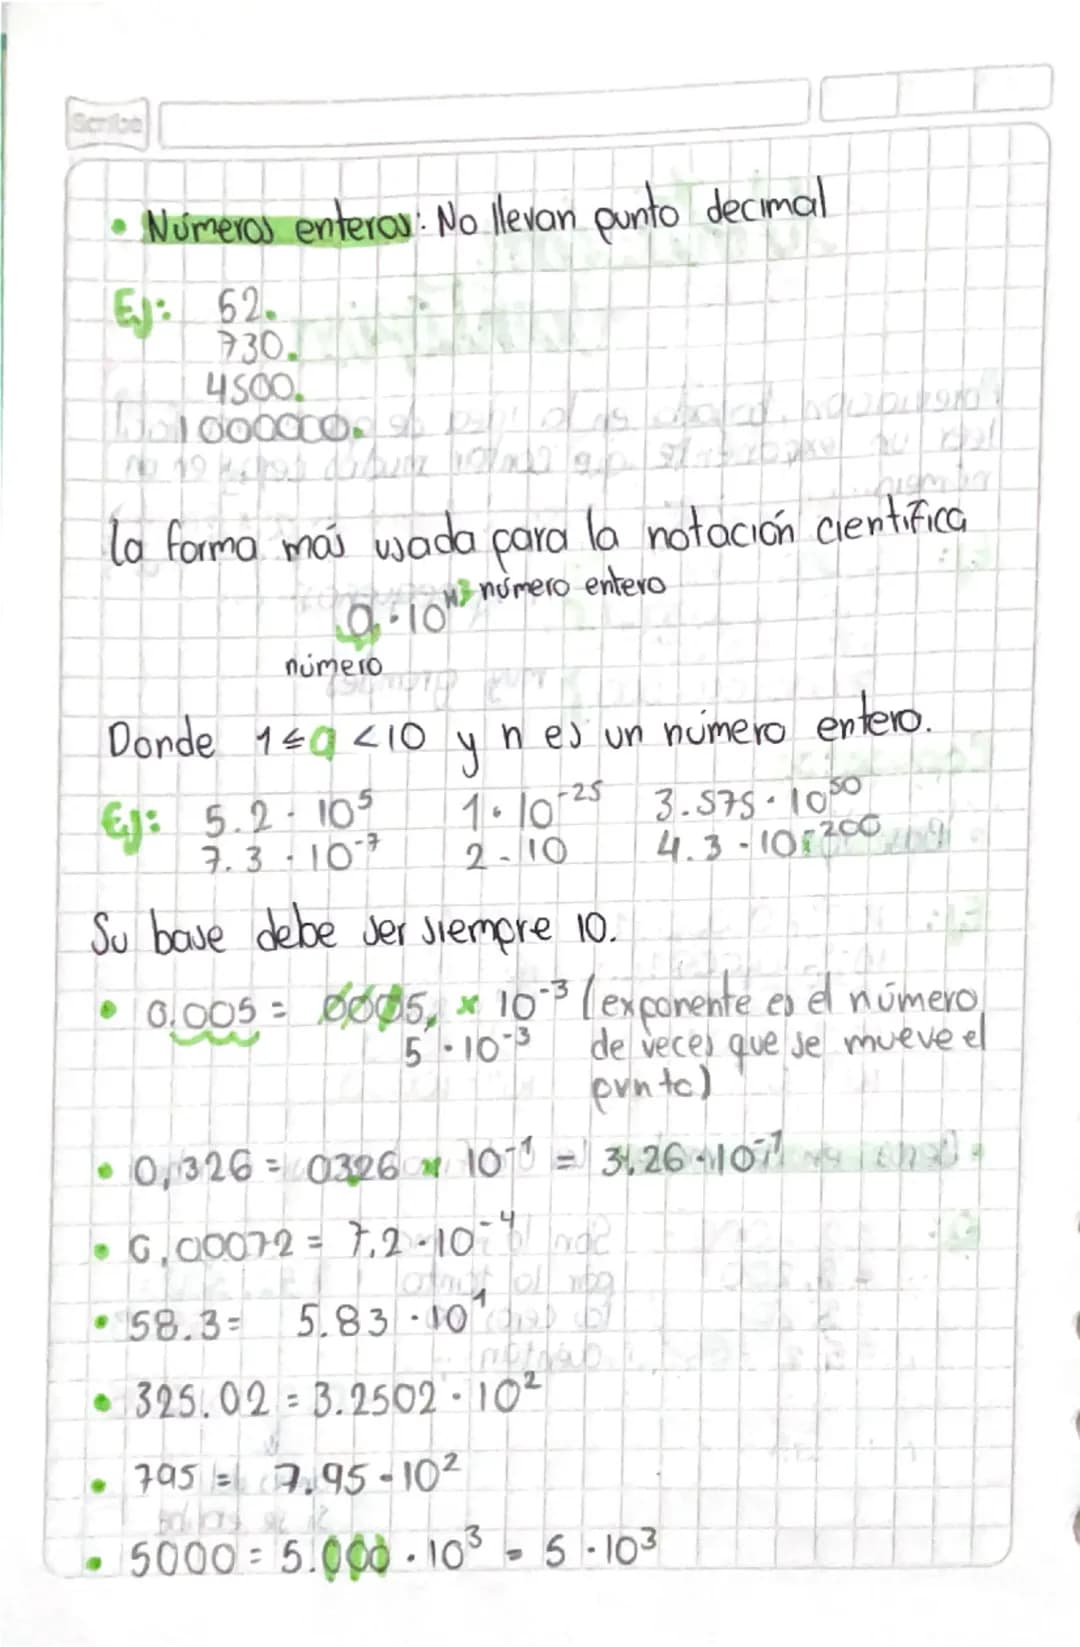 Scribe
• Números enteros: No llevan punto decimal
Ej: 52.
730.
4500.
1000000.
la forma más usada para la notación científica
a · 10ⁿ → número entero
número
Donde 1 ≤ a < 10 y n es un número entero.
Ej: 5.2 · 10⁵ 1 · 10⁻²⁵ 3.575 · 10⁵⁰
7.3 · 10⁻⁷ 2 · 10 4.3 · 10⁻²⁰⁰
Su base debe ser siempre 10.
• 0.005 = 0005, × 10⁻³ (exponente es el número
5 · 10⁻³ de veces que se mueve el
punto)
• 0,326 = 0326 × 10⁻¹ = 3,26 · 10⁻¹
• 0,00072 = 7,2 · 10⁻⁴
• 58.3 = 5.83 · 10¹
• 325.02 = 3.2502 · 10²
• 795 = 7.95 · 10²
• 5000 = 5.000 · 10³ = 5 · 10³